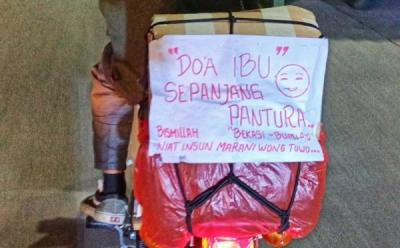 "DO'A IBU"
SEPANJANG
PANTURA..
BISMILLAH "BEKASI -
NIAT INSUN MARANI WONG TUWO...